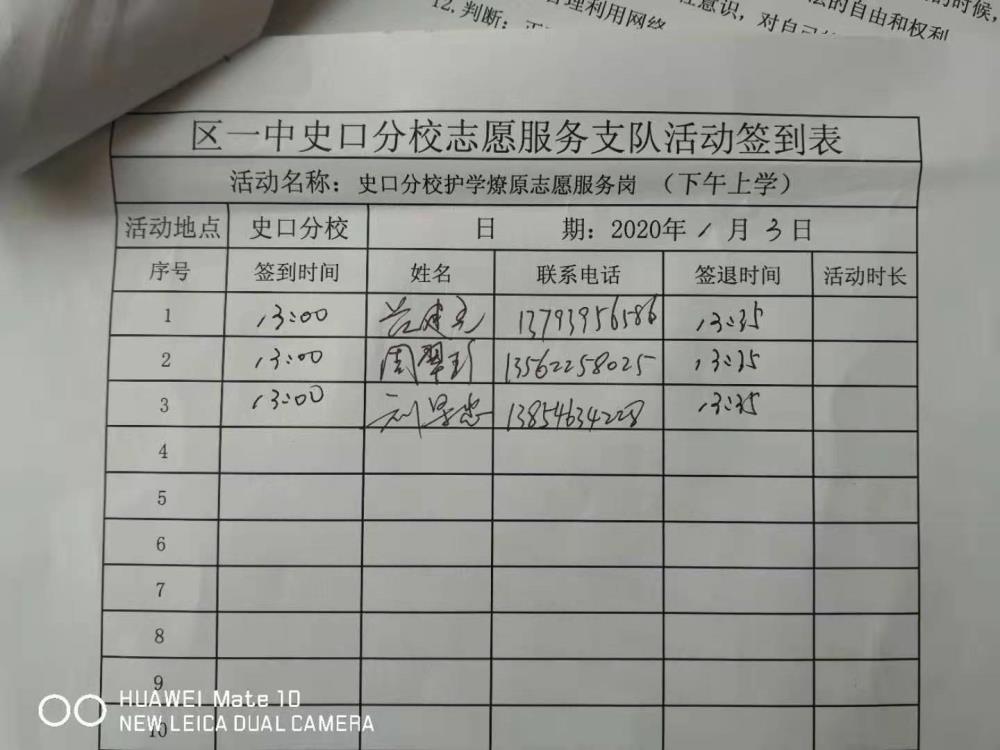 12.判断：
理利用网络
意识，对自己
的自由和权利
的时候，
区一中史口分校志愿服务支队活动签到表
活动名称：史口分校护学燎原志愿服务岗 （下午上学）
活动地点 史口分校 日 期：2020年 1 月 3 日
序号 签到时间 姓名 联系电话 签退时间 活动时长
1 13:00 13793956586 13:35
2 13:00 周翠珍 13562258025 13:35
3 13:00 13854634228 13:35
4
5
6
7
8
9
10
HUAWEI Mate 10
NEW LEICA DUAL CAMERA